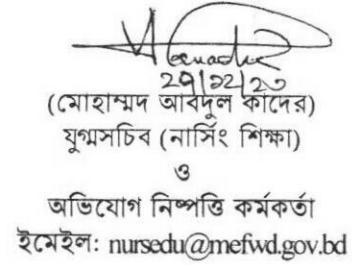 (মোহাম্মদ আবদুল কাদের)
যুগ্মসচিব (নার্সিং শিক্ষা)
ও
অভিযোগ নিষ্পত্তি কর্মকর্তা
ইমেইল: nursedu@mefwd.gov.bd